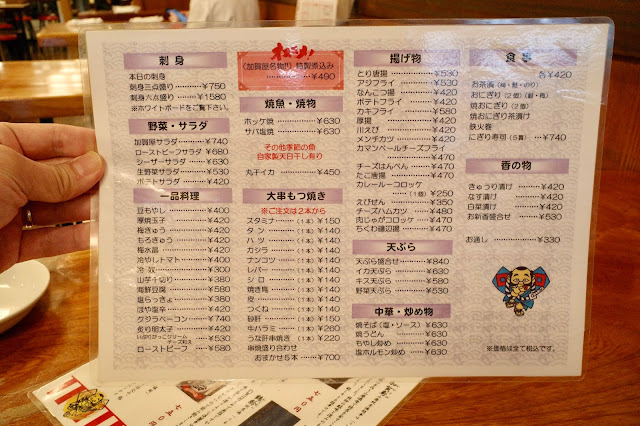 刺身
本日の刺身
刺身三点盛り ¥750
刺身六点盛り ¥1580
※ホワイトボードをご覧下さい。
野菜・サラダ
加賀屋サラダ ¥740
ローストビーフサラダ ¥680
シーザーサラダ ¥630
生野菜サラダ ¥530
ポテトサラダ ¥420
一品料理
豆もやし ¥400
厚焼玉子 ¥420
梅きゅう ¥420
もろきゅう ¥420
梅水晶 ¥420
冷やしトマト ¥400
冷奴 ¥300
山芋千切り ¥380
海鮮豆腐 ¥580
塩らっきょ ¥380
ほや塩辛 ¥420
グジラベーコン ¥740
炙り明太子 ¥420
いぶりがっこクリームチーズ和え ¥530
ローストビーフ ¥580
《加賀屋名物!!》特製煮込み
¥490
焼魚・焼物
ホッケ焼 ¥630
サバ塩焼 ¥630
その他季節の魚
自家製天日干し有り
丸干イカ ¥450
大串もつ焼き
※ご注文は2本から
スタミナ (1本) ¥150
タン (1本) ¥150
ハツ (1本) ¥150
カシラ (1本) ¥150
ナンコツ (1本) ¥150
レバー (1本) ¥150
シロ (1本) ¥150
焼き鳥 (1本) ¥150
皮 (1本) ¥150
つくね (1本) ¥150
砂肝 (1本) ¥150
牛ハラミ (1本) ¥260
うな肝串焼き (1本) ¥220
串焼盛り合わせ
おまかせ5本 ¥700
揚げ物
とり唐揚 ¥530
アジフライ ¥530
なんこつ揚 ¥420
ポテトフライ ¥420
カキフライ ¥580
厚揚 ¥420
川えび ¥420
メンチカツ ¥420
カマンベールチーズフライ
¥420
チーズはんぺん ¥470
たこ唐揚 ¥420
カレールーコロッケ
(1個) ¥250
えびせん ¥350
チーズハムカツ ¥480
肉じゃがコロッケ ¥420
ちくわ磯辺揚 ¥420
天ぷら
天ぷら盛合せ ¥840
イカ天ぷら ¥630
キス天ぷら ¥580
野菜天ぷら ¥530
中華・炒め物
焼そば(塩・ソース) ¥630
焼うどん ¥630
もやし炒め ¥630
塩ホルモン炒め ¥630
食事
各¥420
お茶漬(梅・鮭・のり)
おにぎり(2個)(鮭・梅)
焼おにぎり(2個)
焼おにぎり茶漬け
鉄火巻
にぎり寿司(5貫) ¥740
香の物
きゅうり漬け ¥420
なす漬け ¥420
白菜漬け ¥420
お新香盛合せ ¥530
お通し ¥330
※価格は全て税込です。